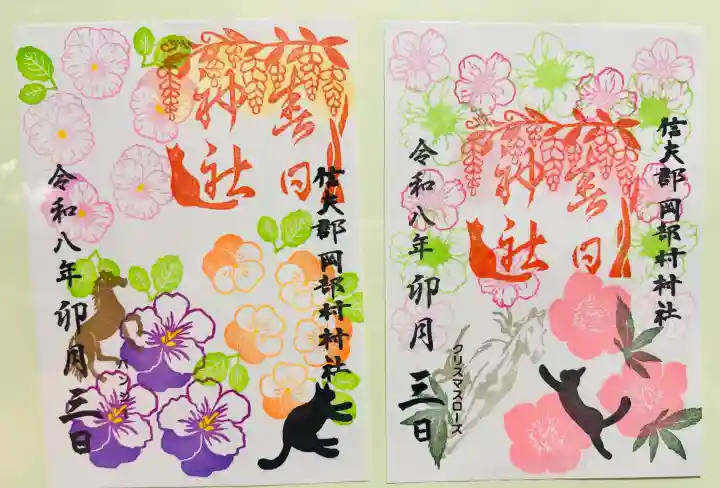 春日
神社
信夫郡岡部村村社
令和八年卯月三日
パンジー
春日
神社
信夫郡岡部村村社
令和八年卯月三日
クリスマスローズ